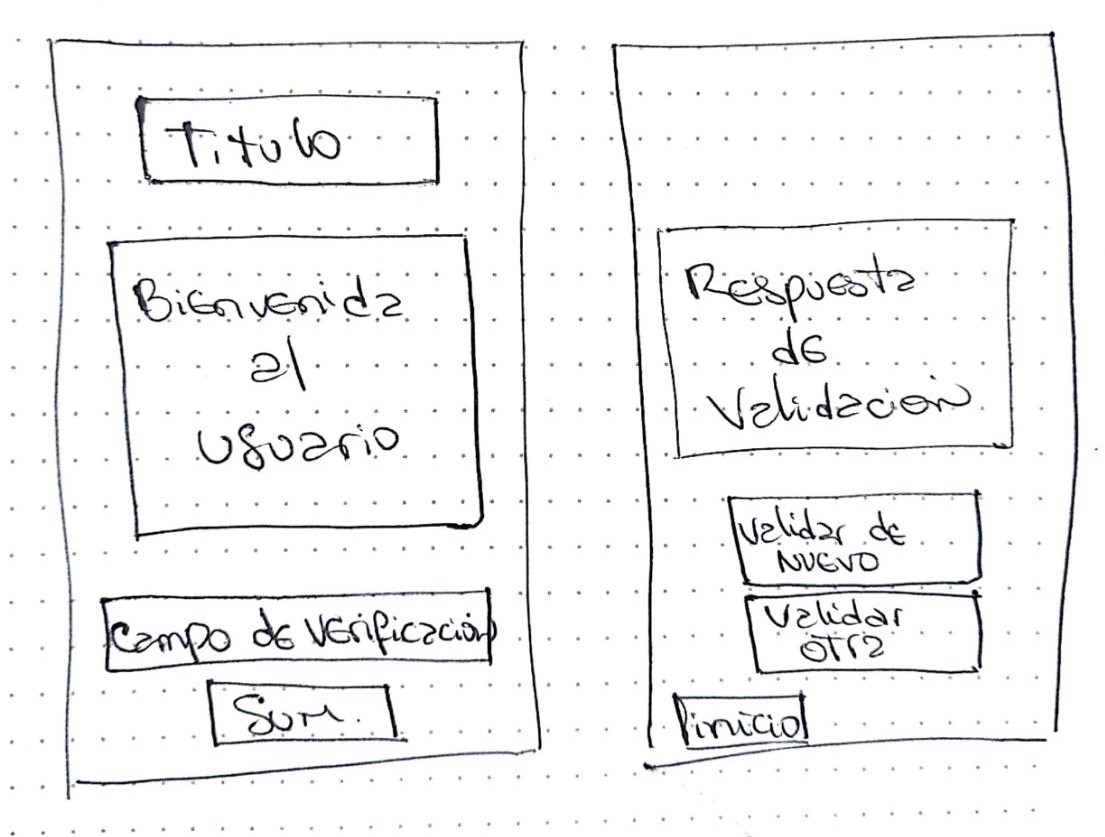 Titulo
Bienvenida
al
usuario
Campo de Verificación
Sum.
Respuesta
de
Validación
Validar de
NUEVO
Validar
otra
inicio